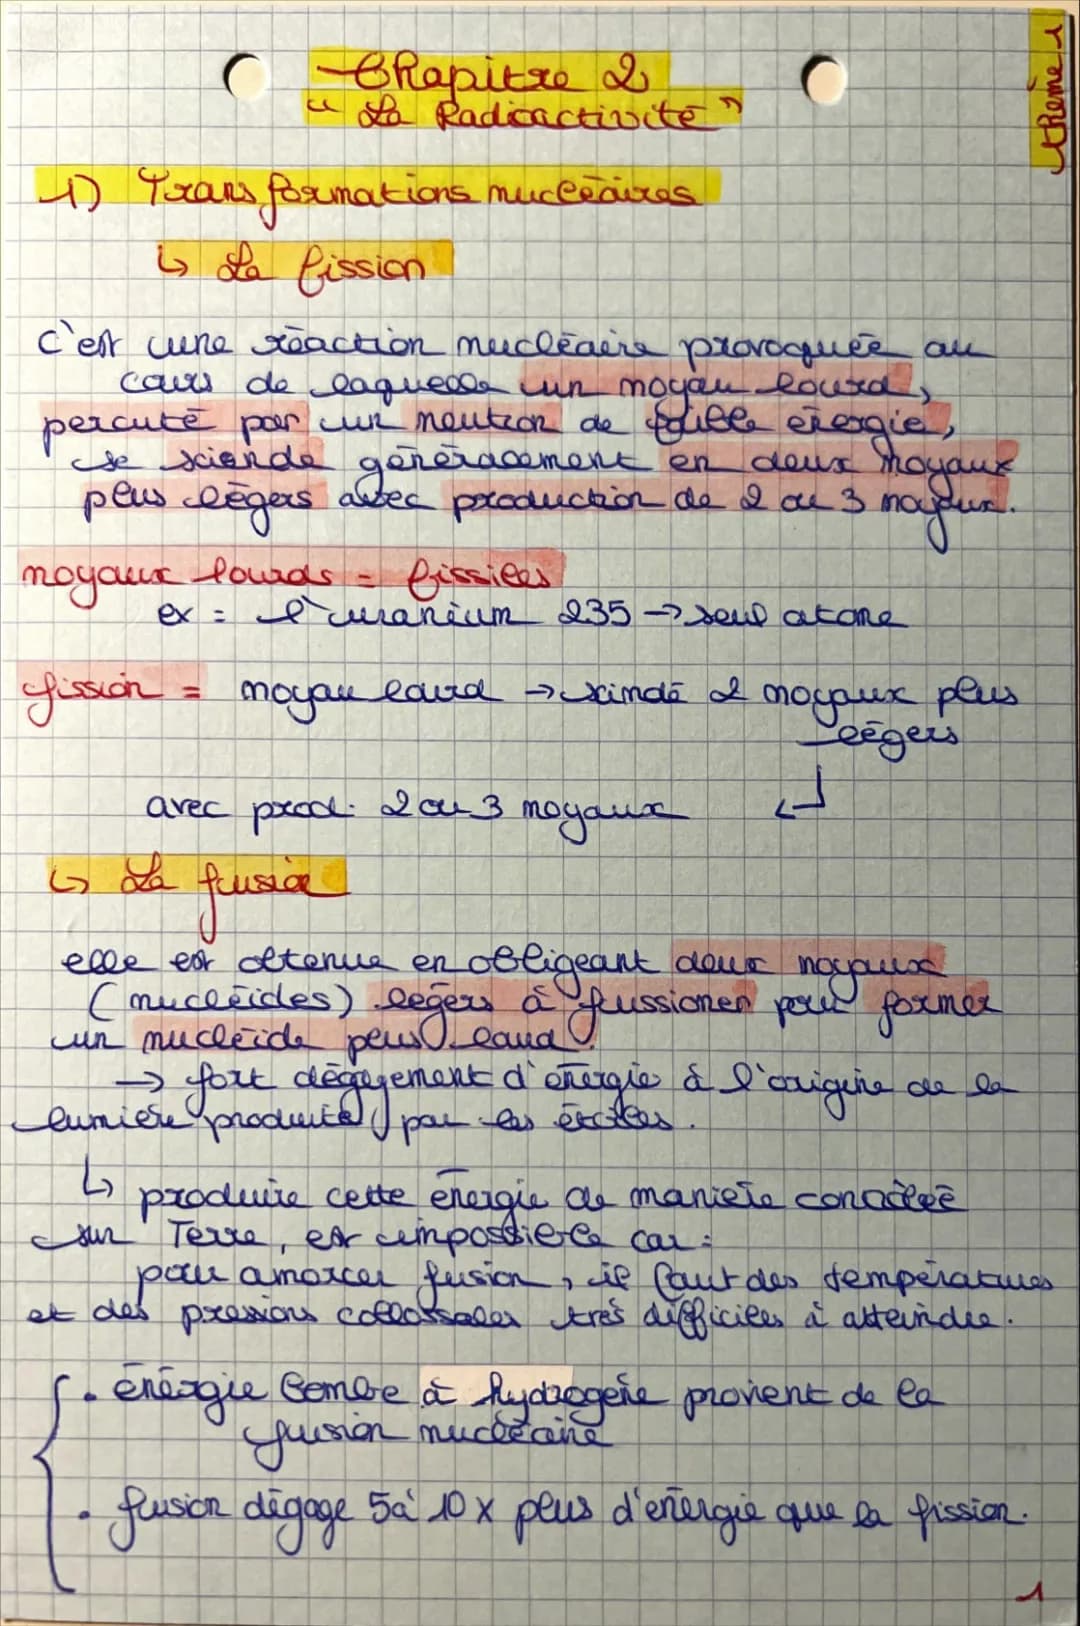 thème 1
Chapitre 2
" La Radioactivité "
1) Transformations nucléaires
↳ La fission
c'est une réaction nucléaire provoquée au
cours de laquelle un noyau lourd,
percuté par un neutron de faible énergie,
se scinde généralement en deux noyaux
plus légers avec production de 2 ou 3 noyaux.
noyaux lourds = fissiles
ex = l'uranium 235 → seul atome
fission = noyau lourd → scindé 2 noyaux plus
légers
avec prod. 2 ou 3 noyaux ↲
↳ La fusion
elle est obtenue en obligeant deux noyaux
(nucléides) légers à fussioner pour former
un nucléide plus lourd.
→ fort dégagement d'énergie à l'origine de la
lumière produite par les étoiles.
↳ produire cette énergie de manière contrôlée
sur Terre, est impossible car :
pour amorcer fusion, il faut des températures
et des pressions collossales très difficiles à atteindre.
• énérgie bombe à hydrogène provient de la
fusion nucléaire
• fusion dégage 5 à 10 x plus d'énergie que la fission.
1